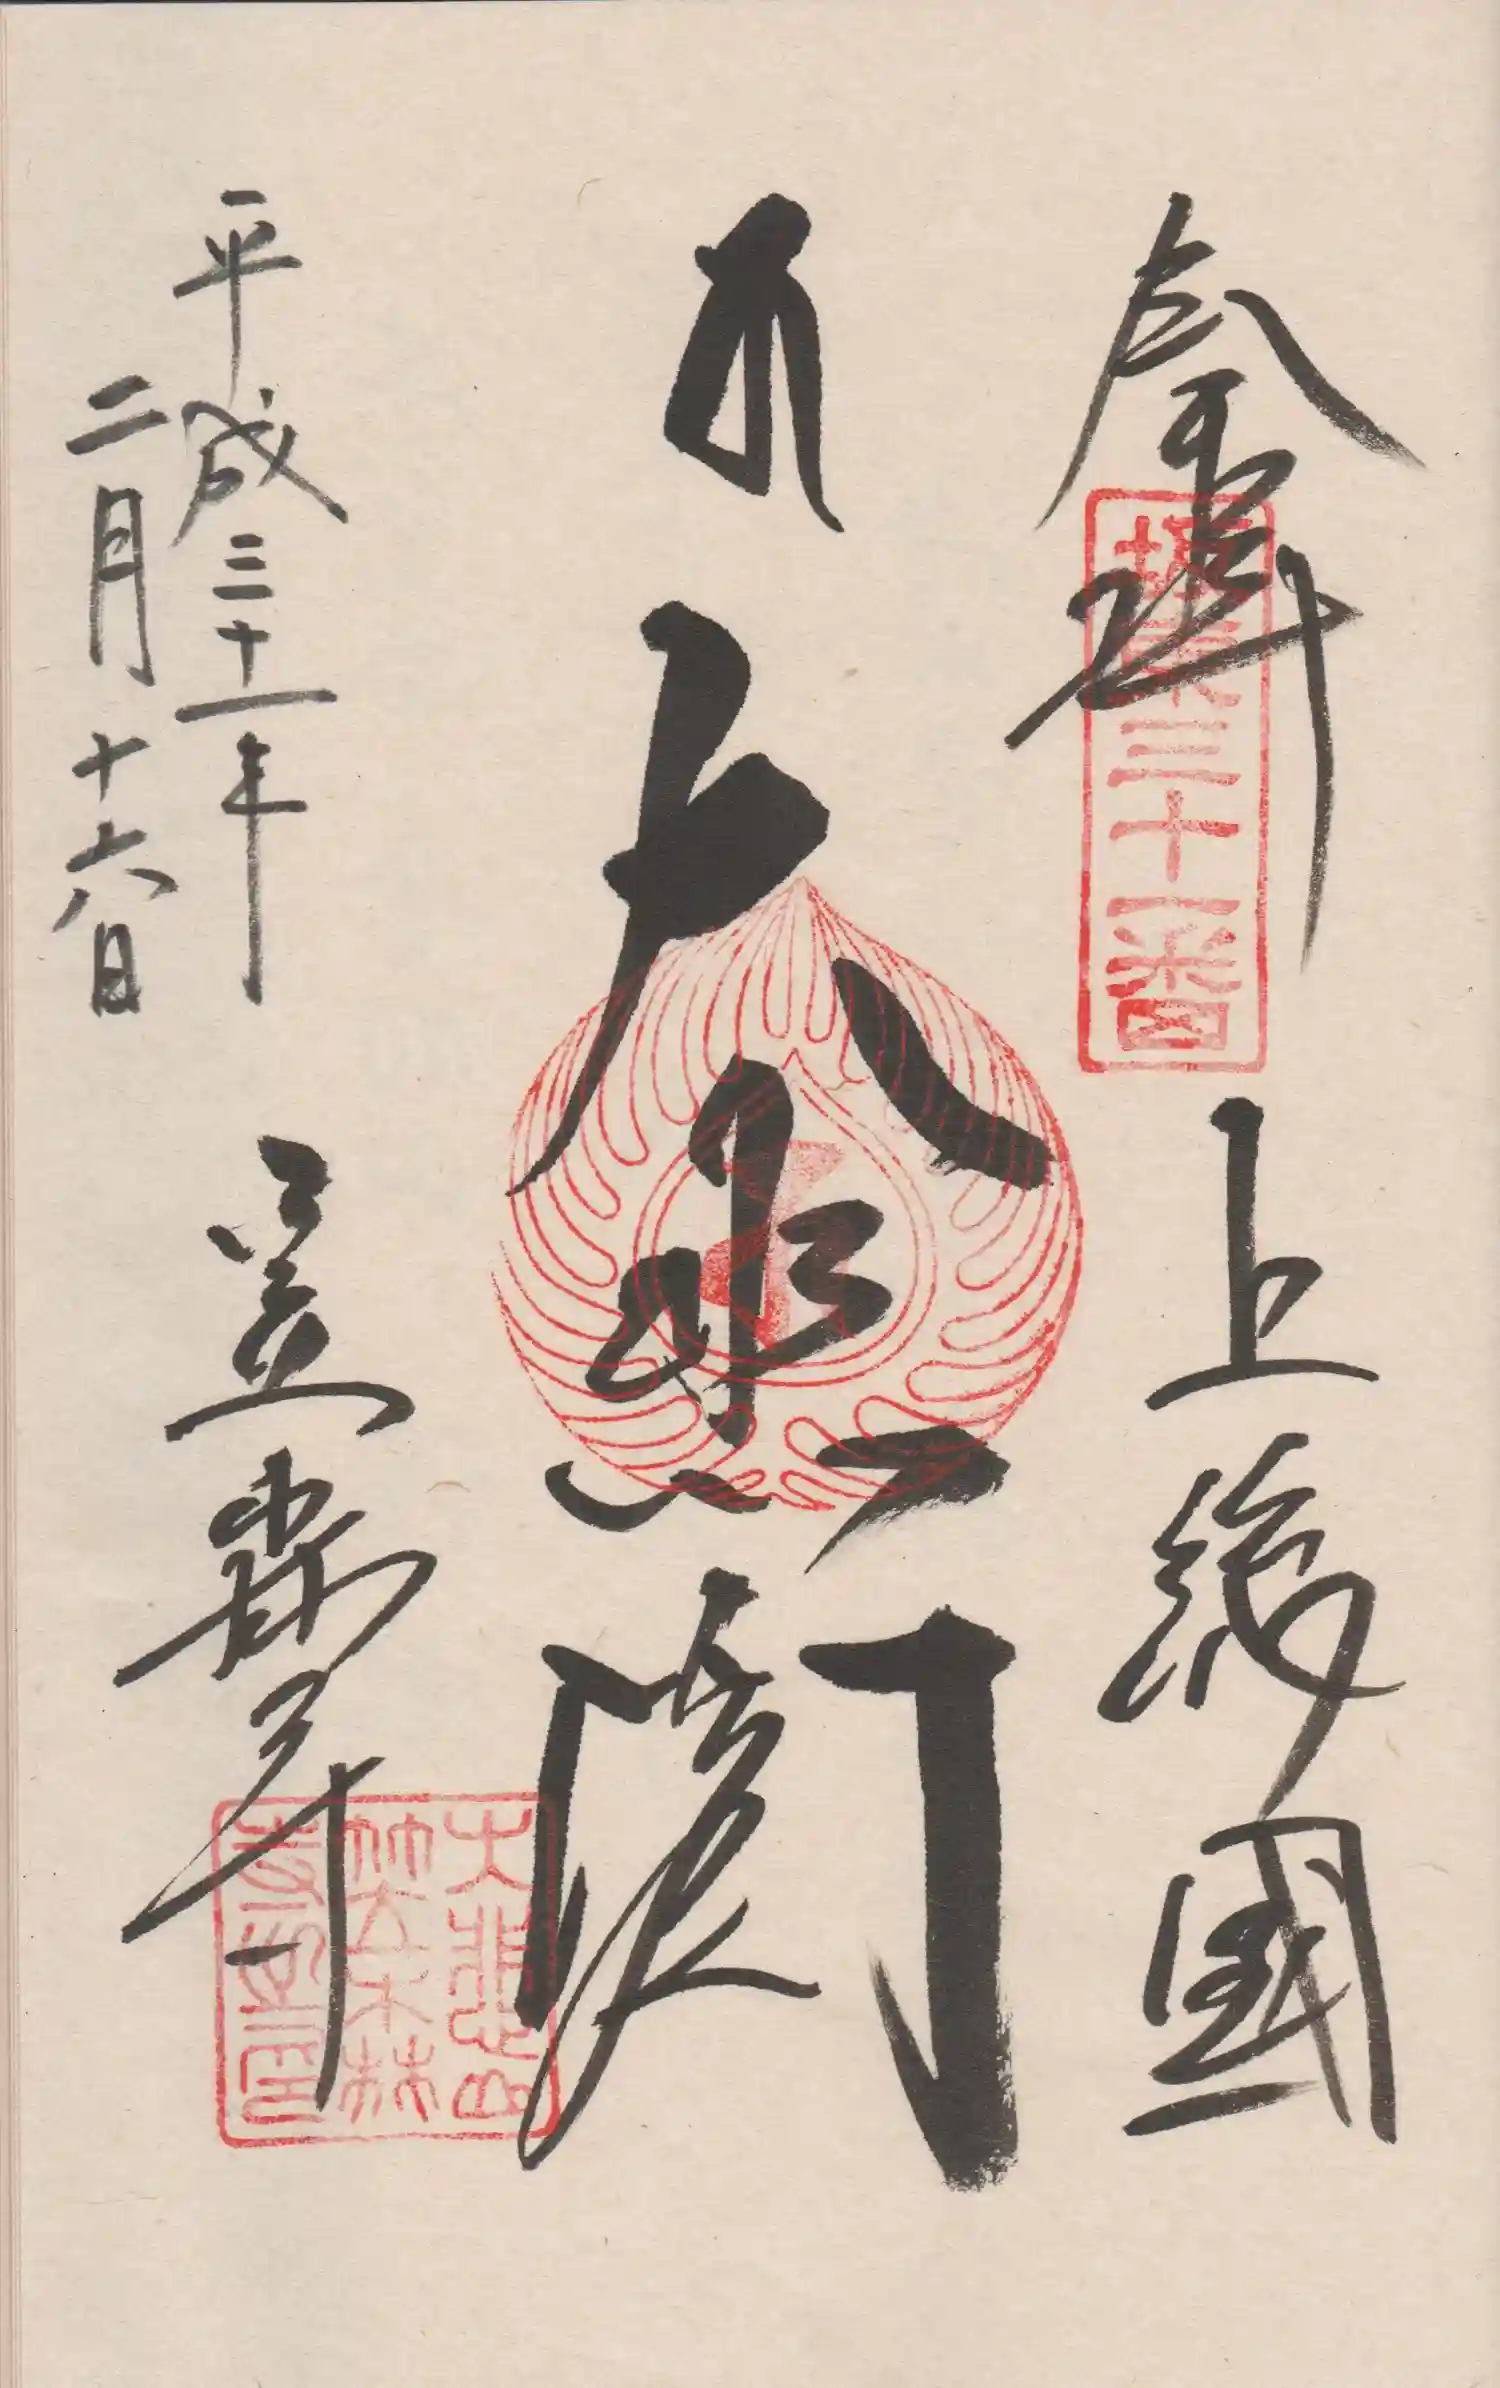 奉拝 上総國
坂東三十一番
大悲閣
平成三十一年
二月十六日
笠森寺
大悲山
笠森